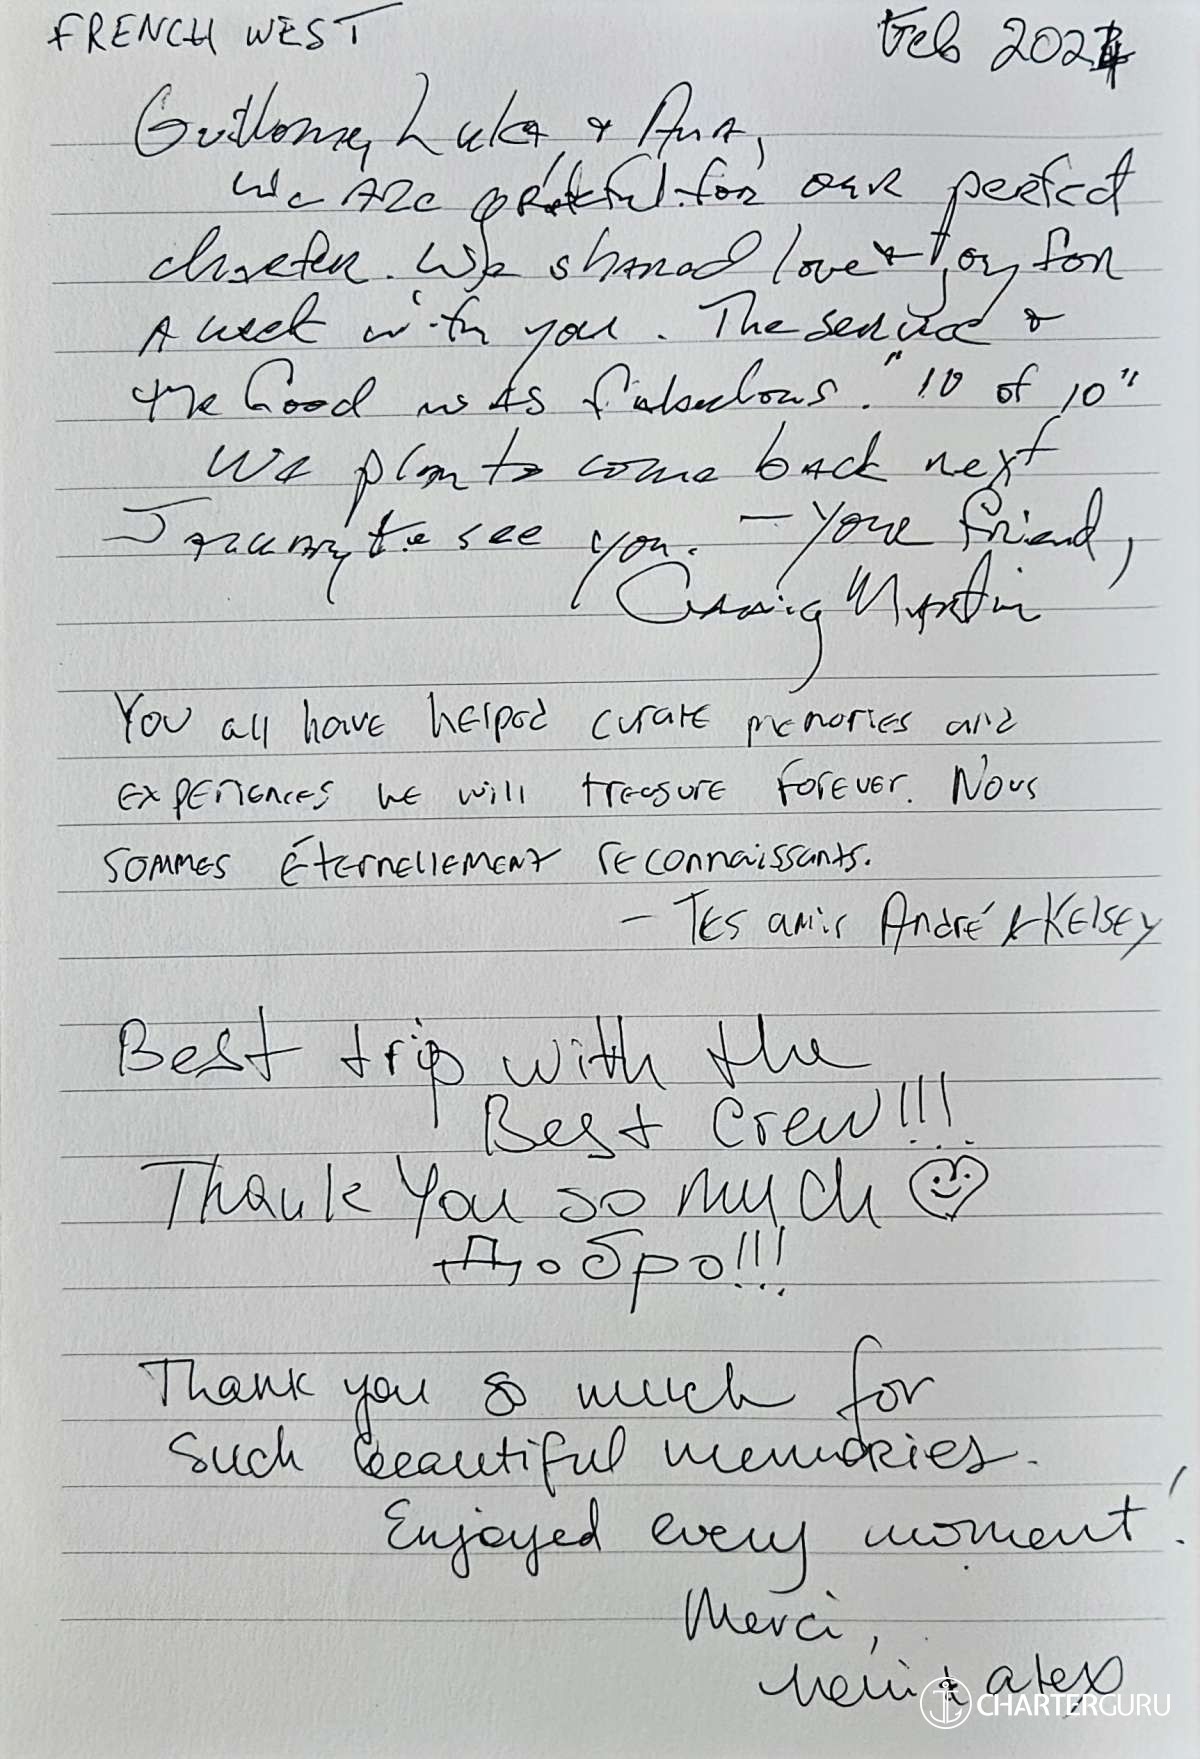 FRENCH WEST Feb 2024
Guillome, Luka + Ana,
We are grateful for our perfect
charter. We shared love + joy for
a week with you. The service &
the food was fabulous. "10 of 10"
We plan to come back next
January to see you. — your friend,
Craig Martin
You all have helped curate memories and
experiences we will treasure forever. Nous
sommes éternellement reconnaissants.
- Tes amis André & Kelsey
Best trip with the
Best Crew!!!
Thank You so much
Добро!!!
Thank you so much for
such beautiful memories.
Enjoyed every moment!
Merci,
& alex
CHARTERGURU